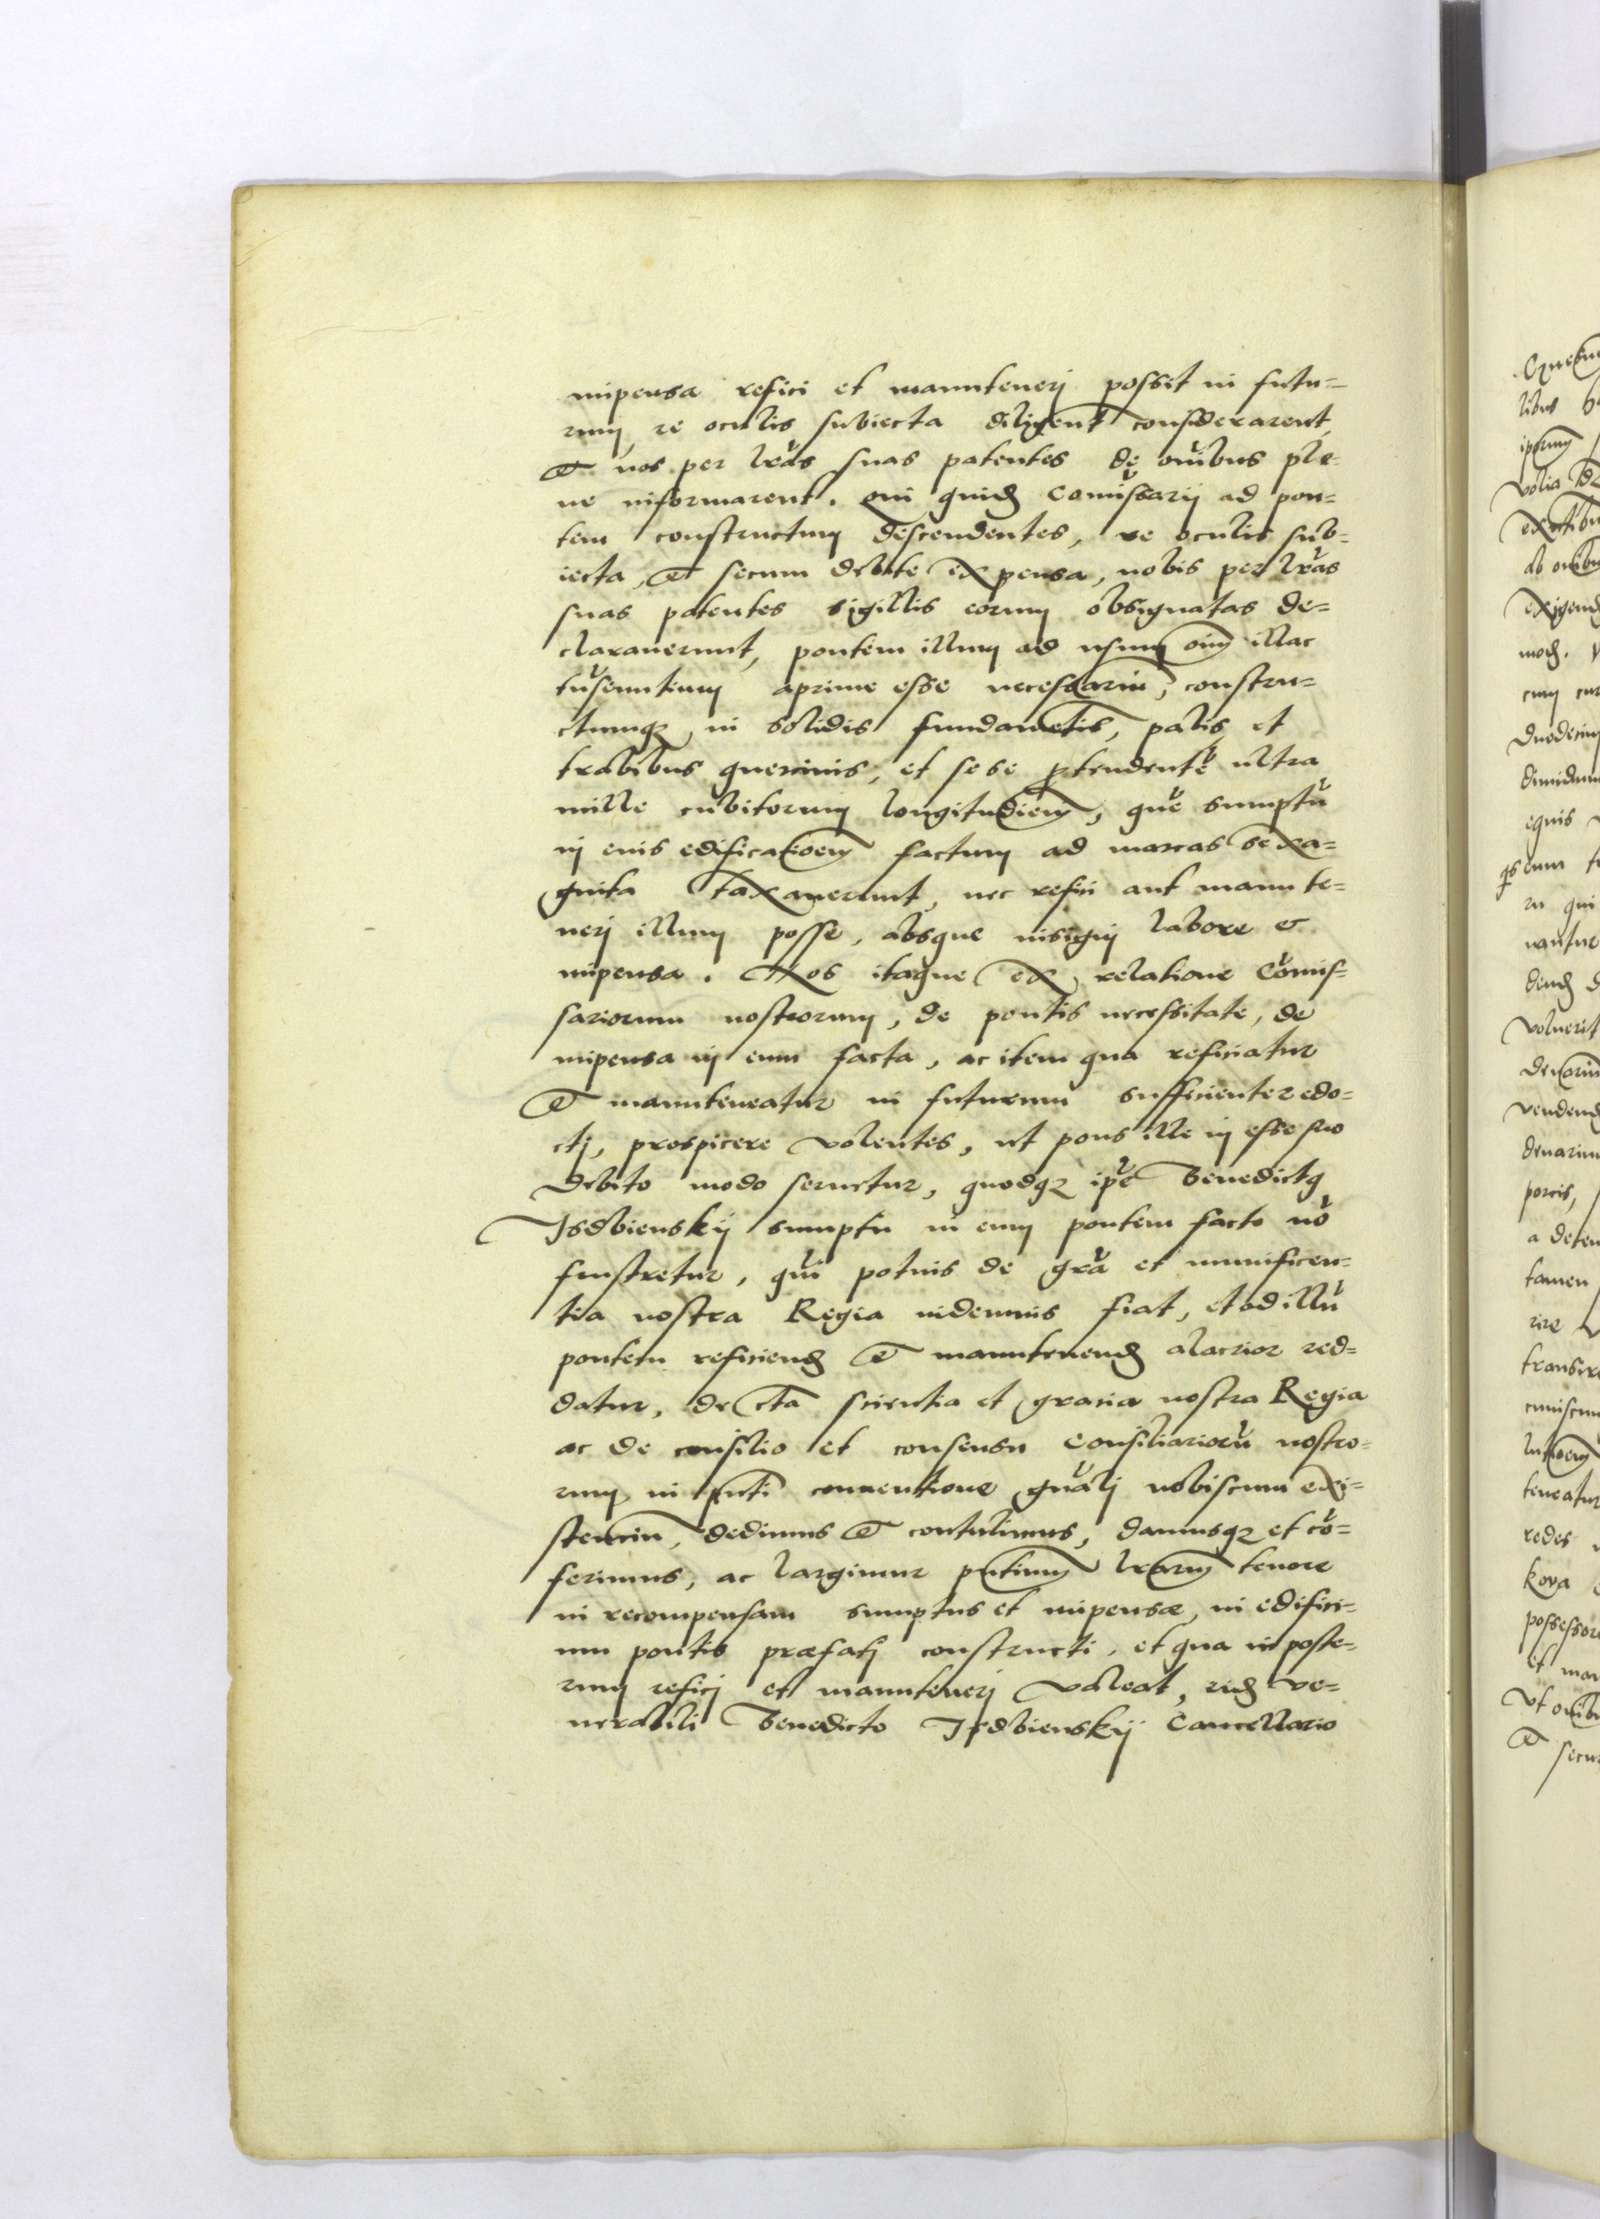 impensa refici et manuteneri possit in futu=
rum, re oculis subiecta diligent considerarent,
Et nos per lras suas patentes de oibus ple-
ne informarent. Qui quid Comissarij ad pon=
tem constructum descendentes, re oculis sub=
iecta, et secum debite expensa, nobis per lras
suas patentes sigillis eorum obsignatas de=
clarauerunt, pontem illum ad usum oim illac
tnseuntium aprime esse necessariu, constru=
ctumq; in solidis fundametis, palis et
trabibus quercinis, et sese ptendente ultra
mille cubitorum longitudiem, que sumptu
in eius edificatoem factum ad marcas sexa=
ginta taxauerunt, nec refici aut manute=
neri illum posse, absque insigni labore &
impensa. Nos itaque ex relatione Comis=
sariorum nostrorum, de pontis necessitate, de
impensa in eum facta, ac item qua reficiatur
Et manuteneatur in futurum sufficienter edo=
cti, prospicere volentes, ut pons ille in esse suo
debito modo seruetur, quodq; ipe Benedict9
Isdbienskij sumptu in eum pontem facto no
frustretur, qui potius de gra et munificen=
tia nostra Regia indemnis fiat, et ad illu
pontem reficiend Et manutenend alacrior red=
datur, de cta scientia et gratia nostra Regia
ac de consilio et consensu Consiliarioru nostro=
rum in pnti conuentione gnali nobiscum exi=
stenciu, dedimus Et contulimus, damusq; et co=
ferimus, ac largimur pntium lrarum tenore
in recompensam sumptus et impensæ, in edifici=
um pontis præfati constructi, et qua in poste=
rum refici et manuteneri valeat, eid ve=
nerabili Benedicto Isdbienskij Cancellario
libus
iporum
ab oibus
exigend
mod.
duodecim
equis
ru qui
uantur
voluerit
vendend
porcis,
tamen
teneatur
redes
kova
Et